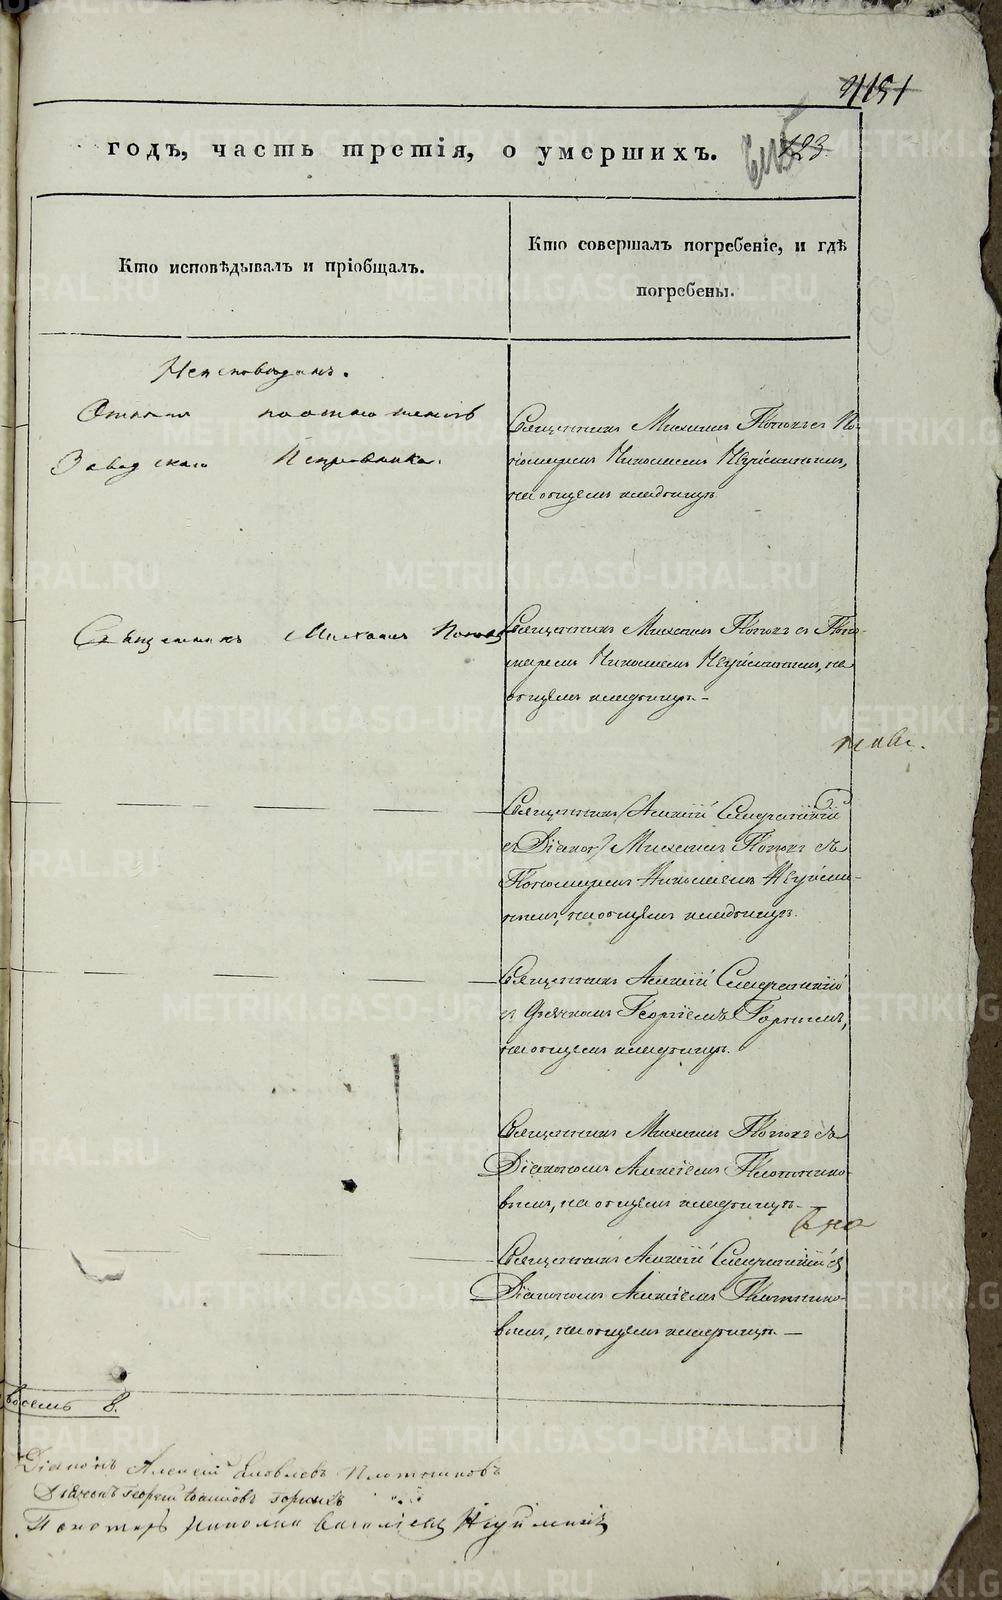 1151
123
годъ, часть третія, о умершихъ.
Кто исповѣдывалъ и пріобщалъ.
Кто совершалъ погребеніе, и гдѣ
погребены.
Неисповѣданъ.
отношенію
Заводскаго Исправника.
Священникъ Михаилъ Поповъ с По-
номаремъ Николаемъ Неуйминымъ,
на общемъ кладбищѣ
Священникъ Михаилъ Поповъ
Священникъ Михаилъ Поповъ с Поно-
маремъ Николаемъ Неуйминымъ, на
общемъ кладбищѣ.
Священникъ Алексій
с Діакон Михаилъ Поповъ съ
Пономаремъ Николаемъ Неуйми-
нымъ, на общемъ кладбищѣ.
Священникъ Алексій
с Дьячкомъ Георгіемъ Горнымъ,
на общемъ кладбищѣ.
Священникъ Михаилъ Поповъ съ
Діакономъ Алексіемъ Плотнико-
вымъ, на общемъ кладбищѣ.
Священникъ Алексій
Діакономъ Алексіемъ Плотнико-
вымъ, на общемъ кладбищѣ. —
восемь 8.
Діаконъ Алексій Яковлевъ Плотниковъ
Дьячекъ Георгій Іоанновъ
Пономарь Николай Неуйминъ
METRIKI.GASO-URAL.RU